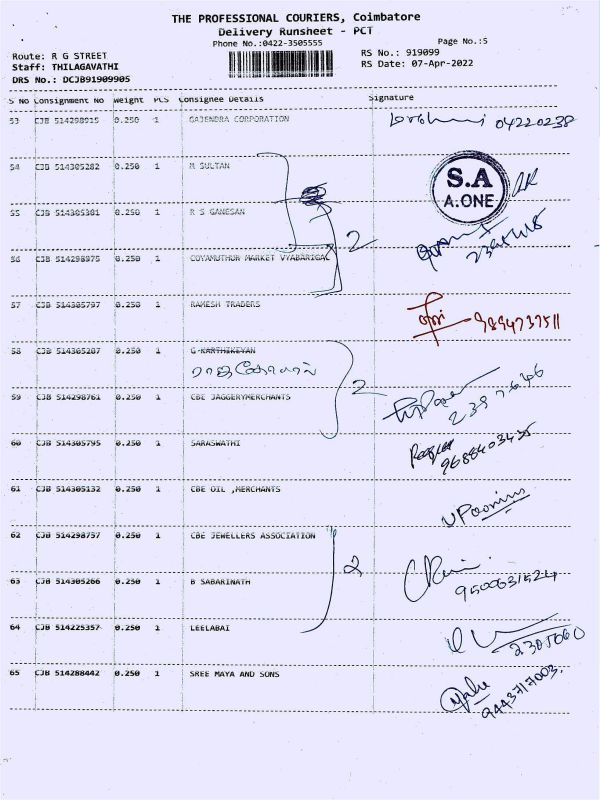 THE PROFESSIONAL COURIERS, Coimbatore
Delivery Runsheet - PCT
Phone No.:0422-3505555
Page No.:5
Route: R G STREET
RS No.: 919099
Staff: THILAGAVATHI
RS Date: 07-Apr-2022
DRS No.: DCJB91909905
S No Consignment No Weight PCS Consignee Details Signature
53 CJB 514298915 0.250 1 GAJENDRA CORPORATION 04220238
54 CJB 514305282 0.250 1 M SULTAN
S.A
A.ONE
55 CJB 514305381 0.250 1 R S GANESAN
2
56 CJB 514298975 0.250 1 COYAMUTHUR MARKET VYABARIGAL
57 CJB 514305797 0.250 1 RAMESH TRADERS 9894737511
58 CJB 514305287 0.250 1 G KARTHIKEYAN
2
59 CJB 514298761 0.250 1 CBE JAGGERYMERCHANTS 2397646
60 CJB 514305795 0.250 1 SARASWATHI
61 CJB 514305132 0.250 1 CBE OIL ,MERCHANTS
62 CJB 514298757 0.250 1 CBE JEWELLERS ASSOCIATION
2
63 CJB 514305266 0.250 1 B SABARINATH 9500631524
64 CJB 514225357 0.250 1 LEELABAI
65 CJB 514288442 0.250 1 SREE MAYA AND SONS 9443717003.